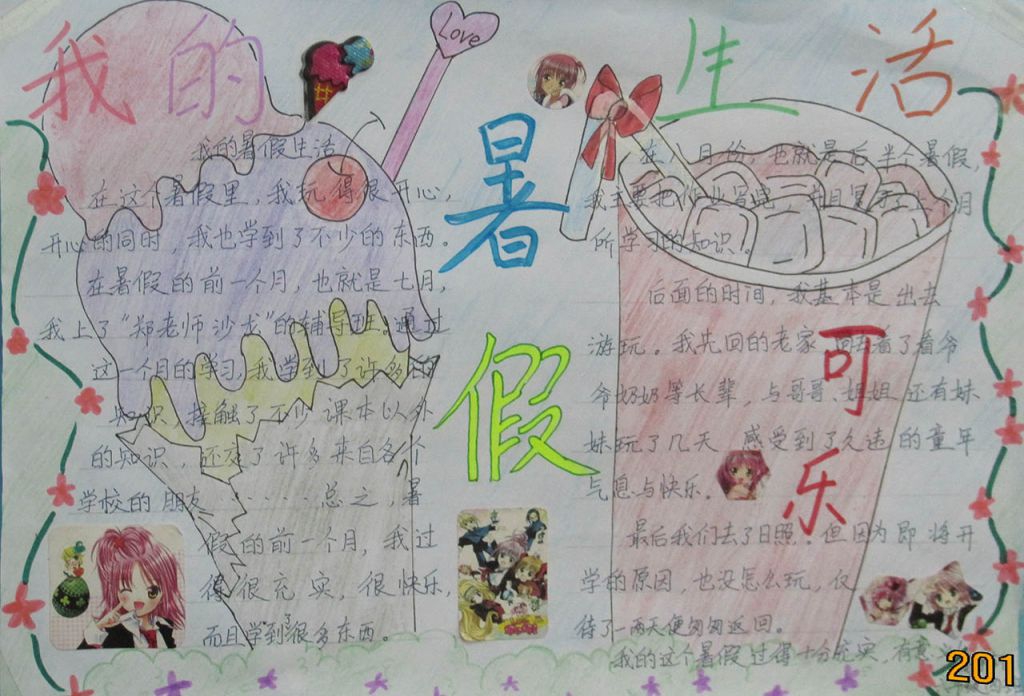 我的暑假生活
Love
我的暑假生活
在这个暑假里，我玩得很开心，
开心的同时，我也学到了不少的东西。
在暑假的前一个月，也就是七月，
我上了“郑老师沙龙”的辅导班。通过
这一个月的学习，我学到了许多的
知识，接触了不少课本以外
的知识，还交了许多来自各个
学校的朋友……总之，暑
假的前一个月，我过
得很充实，很快乐，
而且学到很多东西。
在八月份，也就是后半个暑假，
我主要把作业写完，并且复习上个月
所学习的知识。
后面的时间，我基本是出去
游玩。我先回的老家，回去看了看爷
爷奶奶等长辈，与哥哥、姐姐还有妹
妹玩了几天，感受到了久违的童年
气息与快乐。
最后我们去了日照。但因为即将开
学的原因，也没怎么玩，仅
待了一两天便匆匆返回。
我的这个暑假过得十分充实，有意
可乐
201